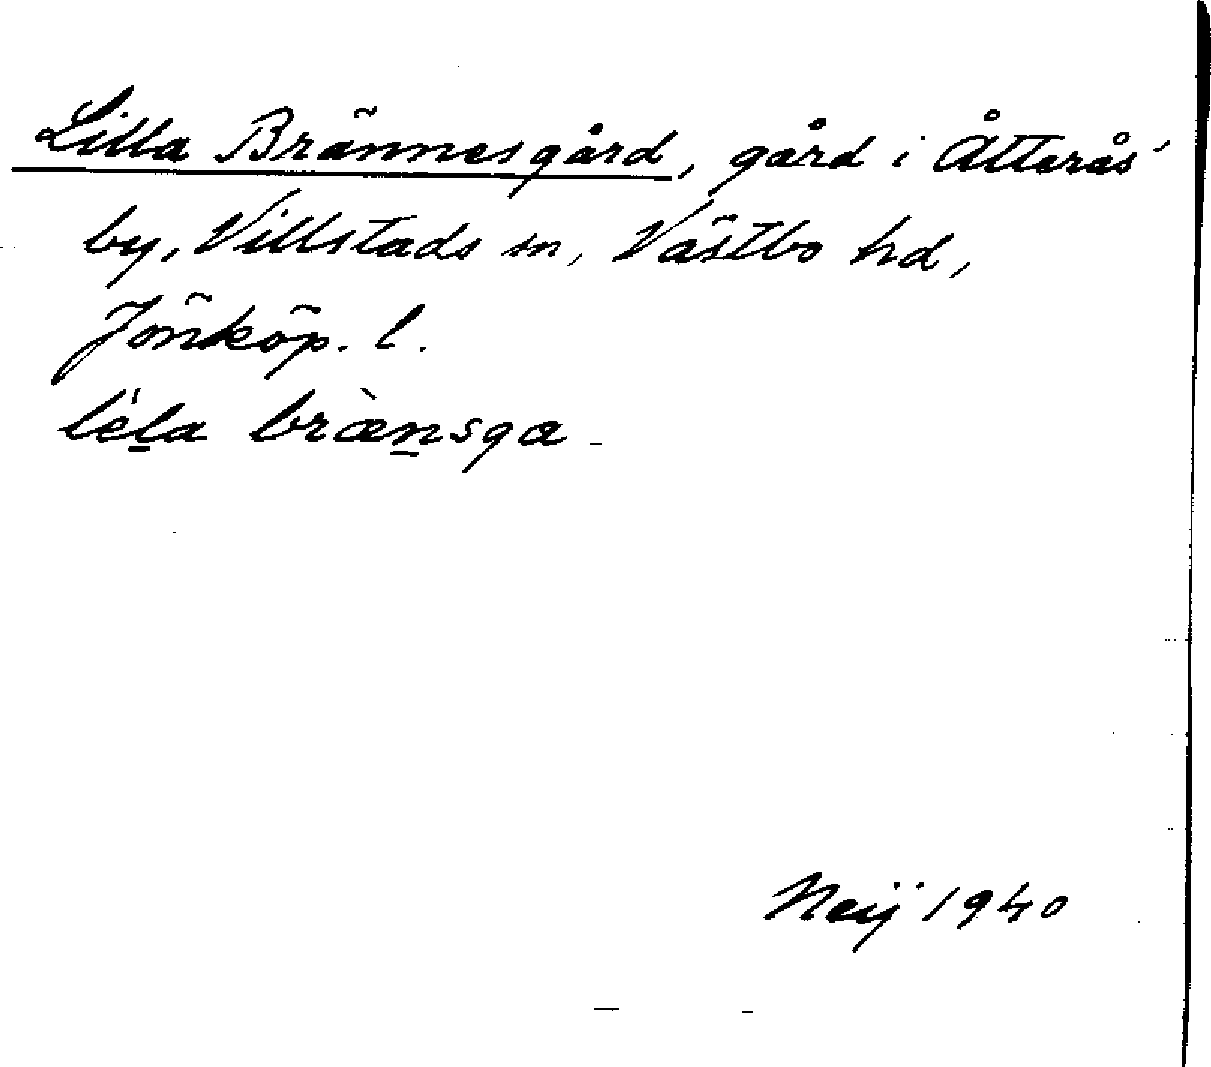 Lilla Brännesgård, gård i Åtterås'
by, Villstads sn, Västbo hd,
Jönköp. l.
léla brænsga
Neij 1940